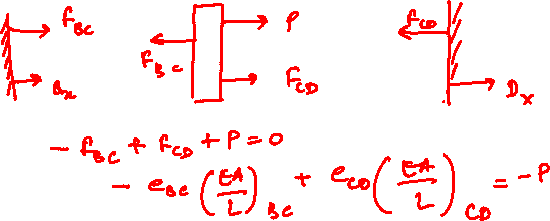 F_BC P F_CD
F_BC F_CD
B_x D_x
- F_BC + F_CD + P = 0
- e_BC (EA/L)_BC + e_CD (EA/L)_CD = -P